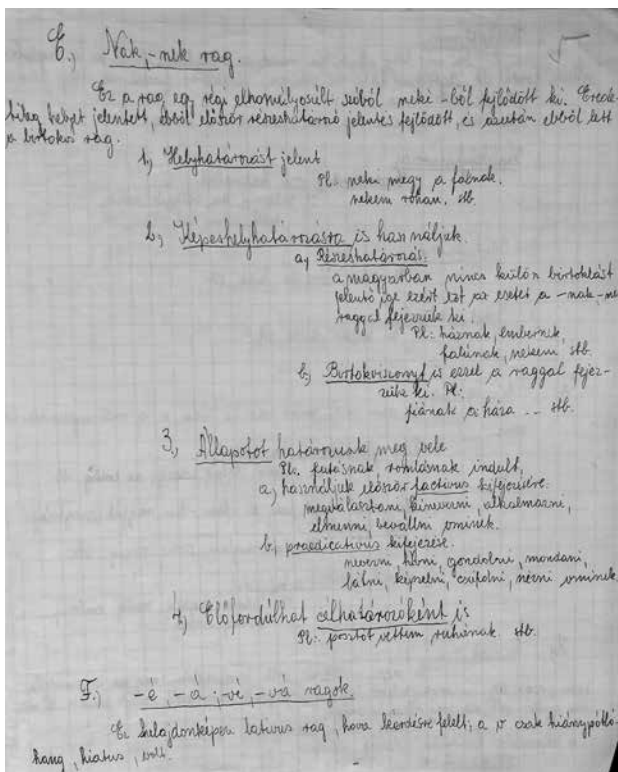 E.) Nak,-nek rag.
Ez a rag egy régi elhomályosúlt szóból neki -ből fejlődött ki. Erede-
tileg helyet jelentett, ebből először részeshatározó jelentés fejlődött, és azután ebből lett
a birtokos rag.
1.) Helyhatározást jelent
Pl. neki megy a fának,
nekem rohan, stb.
2, Képeshelyhatározásra is használjuk.
a, Részeshatározás:
a magyarban nincs külön birtoklást
jelentő ige ezért ezt az esetet a -nak-ne
raggal fejezzük ki.
Pl: háznak, embernek,
falúnak, nekem, stb.
b.) Birtokviszonyt is ezzel a raggal fejez-
zük ki. Pl:
fiának a háza .. stb.
3, Állapotot határozunk meg vele
Pl. futásnak, romlásnak indult,
a, használjuk először factivus kifejezésére.
megválasztani, kinevezni, alkalmazni,
elmenni, bevállni vminek.
b, praedicativus kifejezése.
nevezni, hívni, gondolni, mondani,
látni, képzelni, csúfolni, nézni vminek.
4, Előfordúlhat célhatározóként is
Pl: posztót vettem ruhának. stb.
F.) -é, -á; -vé, -vá ragok.
Ez tulajdonképen lativus rag, hova kérdésre felelt; a v csak hiánypótló
hang, hiatus, volt.